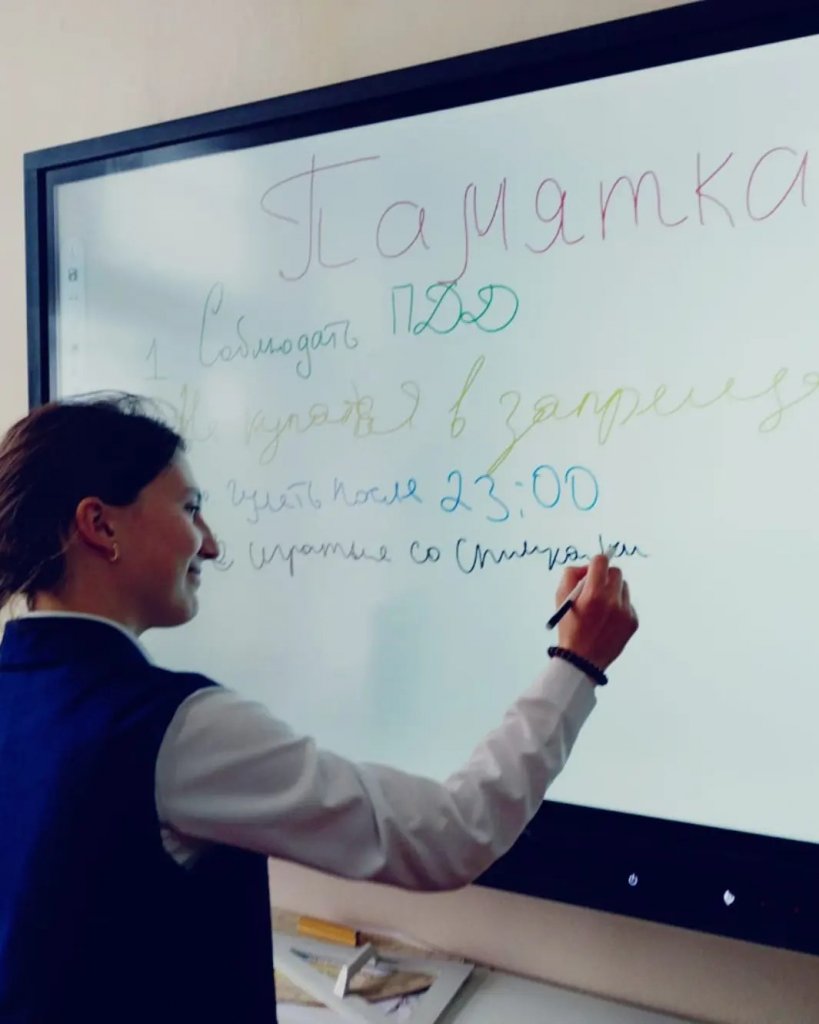 Памятка
1 Соблюдать ПДД
Не купатся в запреще
гулять после 23:00
играться со спичками